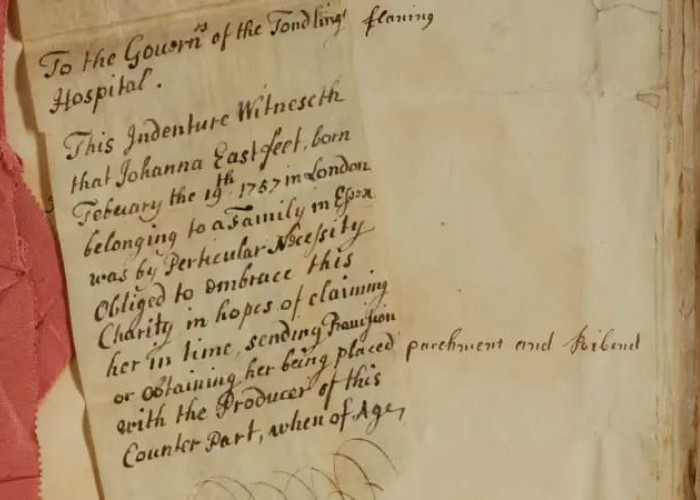 To the Govern.rs of the Fondling flaning
Hospital.
This Indenture Witneseth
that Johanna Eastfeet, born
Febuary the 19th 1757 in London
belonging to a Family in Essex
was by Perticular Necessity
Obliged to embrace this
Charity in hopes of claiming
her in time, sending Provision
or obtaining her being placed parchment and Ribend
with the Producer of this
Counter Part, when of Age,